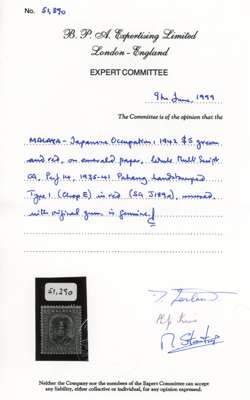 No. 51,290
B. P. A. Expertising Limited
London - England
EXPERT COMMITTEE
9th June, 1999
The Committee is of the opinion that the
MALAYA - Japanese Occupation, 1942 $5 green
and red, on emerald paper, Mult Script
CA, Perf 14, 1935-41 Pahang handstamped
Type 1 (Chop E) in red (SG J189a), unused,
with original gum is genuine.
51,290
MALAYA
Neither the Company nor the members of the Expert Committee can accept
any liability, either collective or individual, for any opinion expressed.